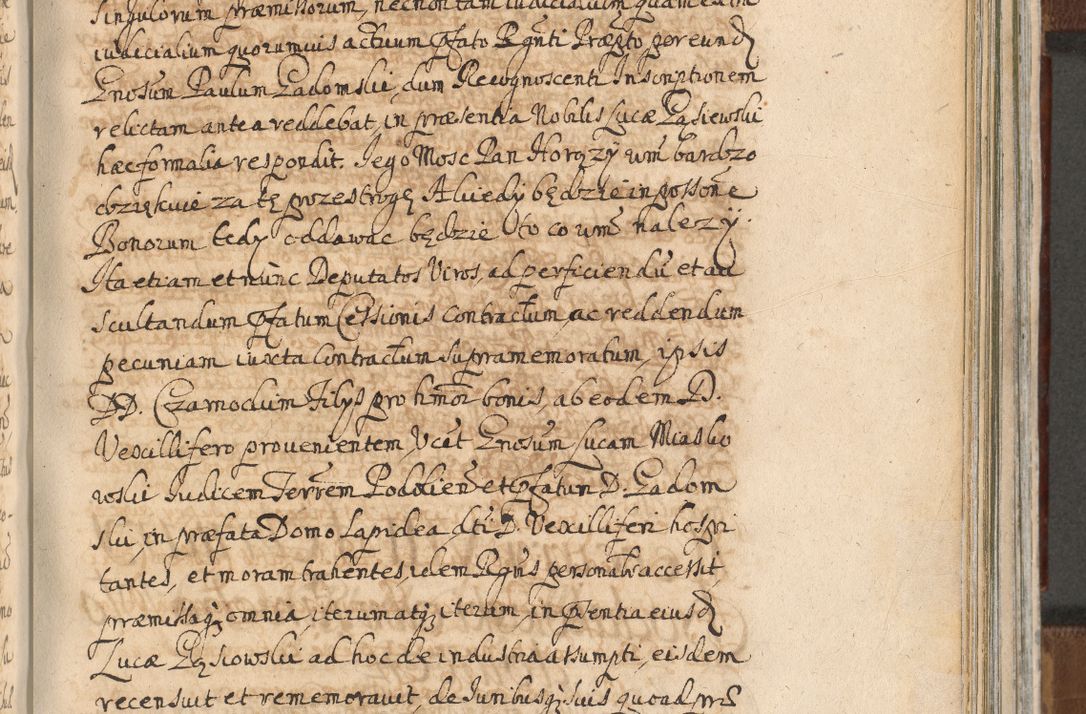 singulorum præmissorum, necnon tam iudicialium quam extra
iudicialium quorumuis actuum pfato Rgnti Præpto pereund
Gnosum Paulum Gadomskii, dum Recognoscenti Inscriptionem
relictam antea reddebat, in præsentia Nobilis Lucæ Gąsiewskii
hæc formalia respondit. Iego Mosc Pan Horązy wm̃ bardzo
dziękuie za tę przestrogę A kiedy będzie in possone
Bonorum tedy oddawac będzie to co wm̃ nalezy.
Ita etiam et nunc Deputatos Viros, ad perficiendũ et au
scultandum pfatum Cessionis contractum, ac reddendum
pecuniam iuxta Contractum supramemoratum, ipsis
DD. Czarnockim Filys pro hmoi bonis, ab eodem D.
Vexillifero provenientem, Vcit Gnosum Lucam Miasko
wskii Iudicem Terrem Podolien̄ et pfatun D. Gadom
skii, in præfata Domo Lapidea dti D. Vexilliferi hospi
tantes, et moram trahentes, idem Rgns personalr accessit,
præmissaq; omnia, iterum atq; iterum, in pſentia eiusd
Lucæ Gąsiowskii ad hoc de industria assumpti, eisdem
recensuit et rememoravit, de Iuribusq; suis quoad prm̃